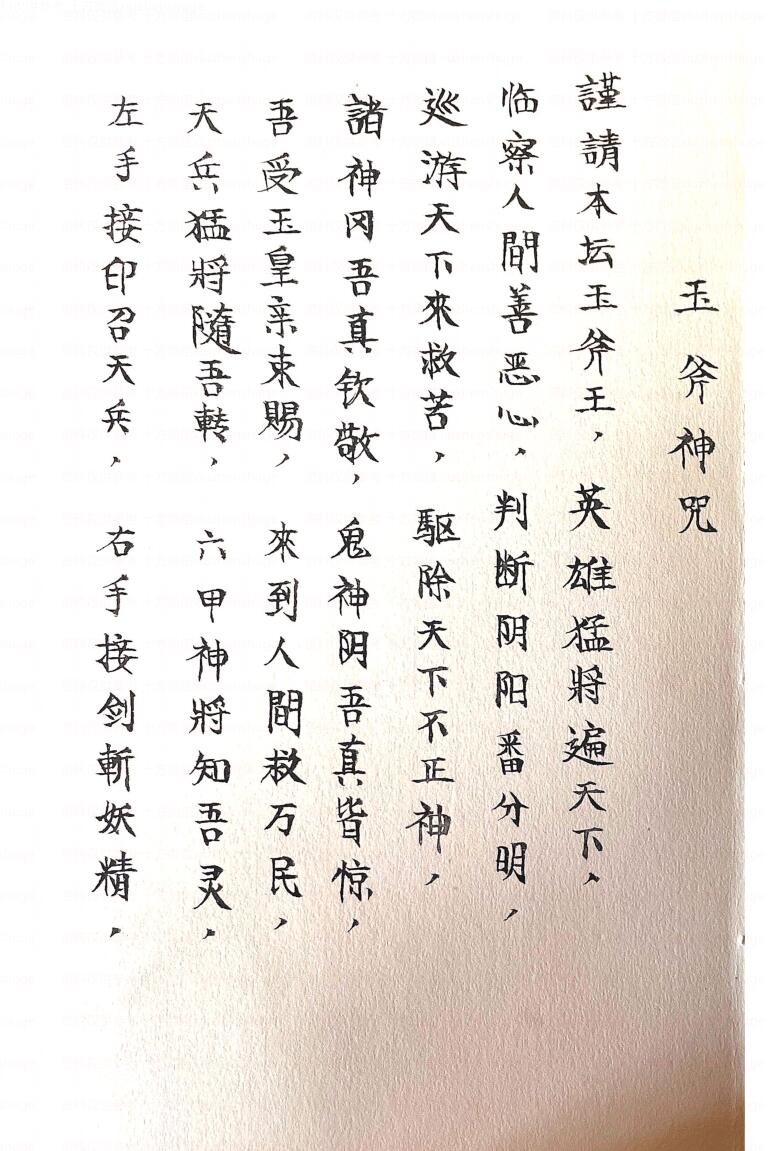 玉斧神咒
謹請本坛玉斧王，英雄猛將遍天下，
临察人間善恶心，判断阴阳番分明，
巡游天下來救苦，驱除天下不正神，
諸神冈吾真钦敬，鬼神阴吾真皆惊，
吾受玉皇亲束賜，來到人間救万民，
天兵猛將隨吾轉，六甲神將知吾灵，
左手接印召天兵，右手接剑斬妖精，